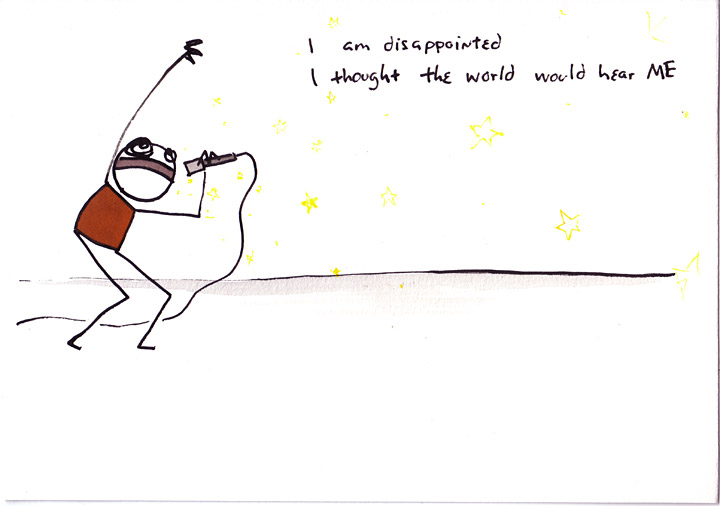 I am disappointed
I thought the world would hear ME